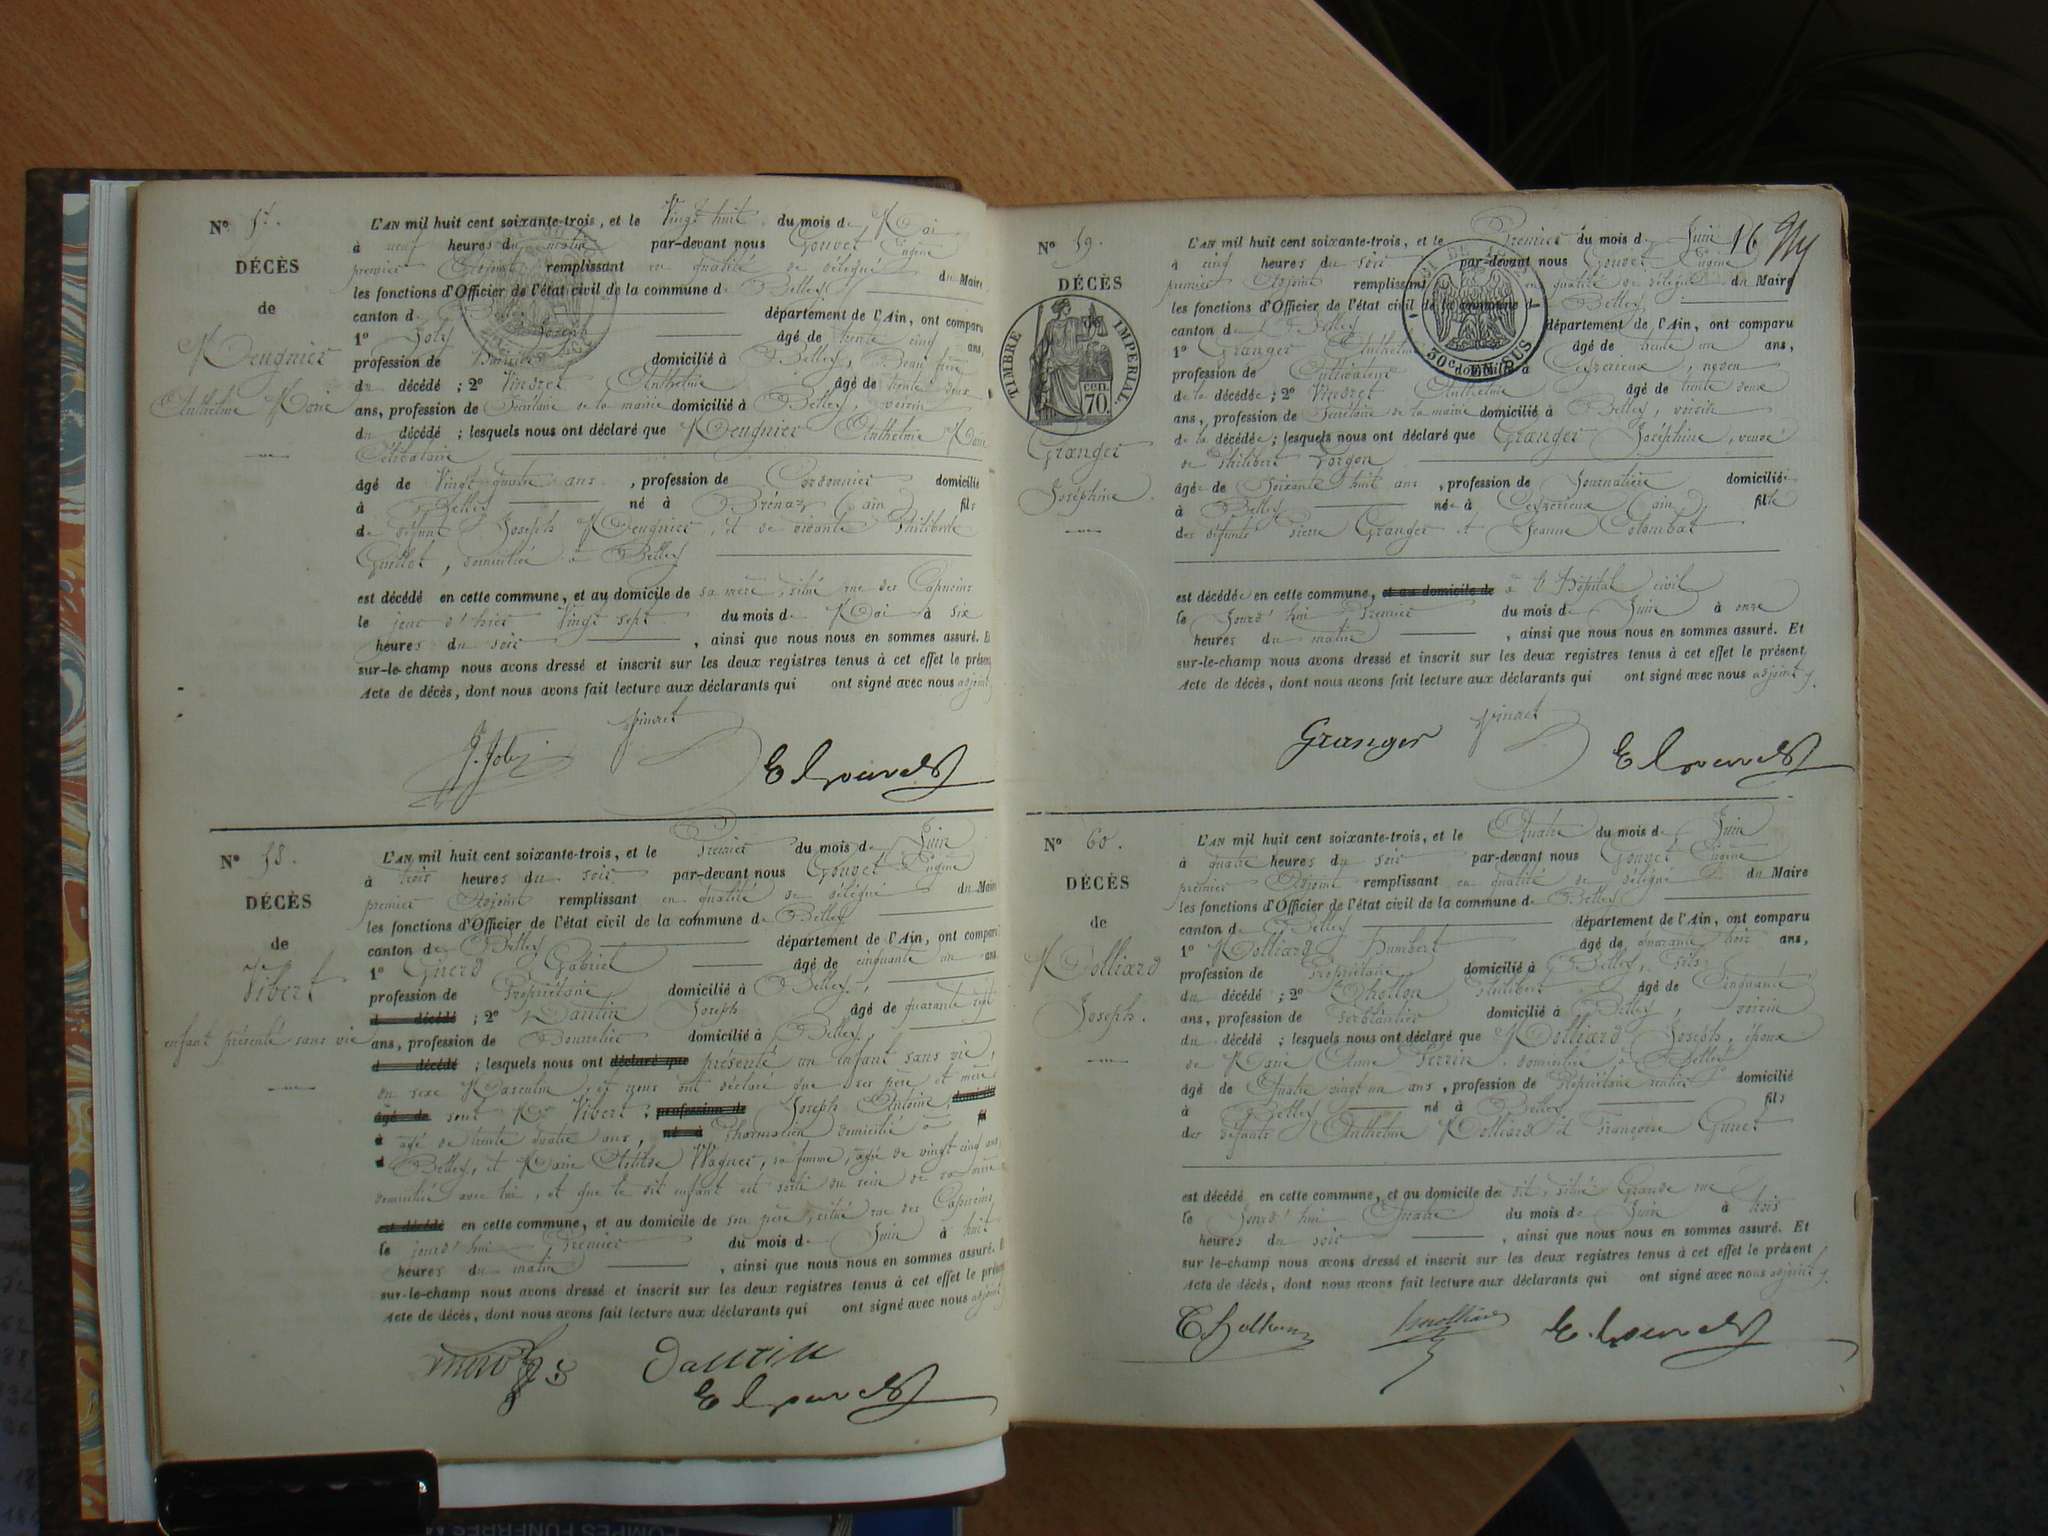 Nº 57.
DÉCÈS
de
Meugnier
Anthelme Marie
L'AN mil huit cent soixante-trois, et le Vingt huit du mois de Mai
à neuf heures du matin par-devant nous Gouvet Eugène
premier Adjoint remplissant en qualité de délégué du Maire
les fonctions d'Officier de l'état civil de la commune de Belley
canton de Belley département de l'Ain, ont comparu
1º Joly Joseph âgé de trente cinq ans,
profession de domicilié à Belley, Beau frère
du décédé ; 2º Vindret Anthelme âgé de trente deux
ans, profession de Secrétaire de la mairie domicilié à Belley, voisin
du décédé ; lesquels nous ont déclaré que Meugnier Anthelme Marie
Célibataire
âgé de Vingt quatre ans, profession de Cordonnier domicilié
à Belley né à Brénaz (Ain) fils
de défunt Joseph Meugnier, et de vivante Philiberte
Guillot, domiciliée à Belley
est décédé en cette commune, et au domicile de sa mère, situé rue des Capucins
le jour d'hier Vingt sept du mois de Mai à six
heures du soir, ainsi que nous nous en sommes assuré. Et
sur-le-champ nous avons dressé et inscrit sur les deux registres tenus à cet effet le présent
Acte de décès, dont nous avons fait lecture aux déclarants qui ont signé avec nous adjoint
J. Joly Vindret E Gouvet
Nº 58.
DÉCÈS
de
Vibert
enfant présenté sans vie
L'AN mil huit cent soixante-trois, et le Premier du mois de Juin
à trois heures du soir par-devant nous Gouvet Eugène
premier Adjoint remplissant en qualité de délégué du Maire
les fonctions d'Officier de l'état civil de la commune de Belley
canton de Belley département de l'Ain, ont comparu
1º Gabriel âgé de cinquante un ans
profession de Propriétaire domicilié à Belley,
d décédé ; 2º Dantin Joseph âgé de quarante sept
ans, profession de Bourrelier domicilié à Belley
d décédé ; lesquels nous ont déclaré que présenté un enfant sans vie,
du sexe Masculin, et nous ont déclaré que ses père et mère
âgé de sont Mr Vibert, profession de Joseph Antoine, domicilié
à âgé de trente quatre ans, né à Pharmacien domicilié à fil
d Belley, et Marie Clotilde Wagner, sa femme, âgée de vingt cinq ans
domiciliée avec lui, et que le dit enfant est sorti du sein de sa mère
est décédé en cette commune, et au domicile de son père, situé rue des Capucins
le jourd'hui Premier du mois de Juin à huit
heures du matin, ainsi que nous nous en sommes assuré. Et
sur-le-champ nous avons dressé et inscrit sur les deux registres tenus à cet effet le présent
Acte de décès, dont nous avons fait lecture aux déclarants qui ont signé avec nous adjoint
Dantin
E Gouvet
Nº 59.
DÉCÈS
TIMBRE IMPERIAL.
70. cen.
Granger
Joséphine.
16
L'AN mil huit cent soixante-trois, et le Premier du mois de Juin
à cinq heures du soir par-devant nous Gouvet Eugène
premier Adjoint remplissant en qualité de délégué du Maire
les fonctions d'Officier de l'état civil de la commune d Belley
canton de Belley département de l'Ain, ont comparu
50c EN SUS
1º Granger Anthelme âgé de trente un ans,
profession de Cultivateur domicilié à Ceyzerieux, neveu
de la décédée ; 2º Vindret Anthelme âgé de trente deux
ans, profession de Secrétaire de la mairie domicilié à Belley, voisin
de la décédée ; lesquels nous ont déclaré que Granger Joséphine, veuve
de Philibert Gorgon
âgée de Soixante huit ans, profession de Journalière domiciliée
à Belley née à Ceyzerieux (Ain) fille
des défunts Pierre Granger et Jeanne Colombat
est décédée en cette commune, et au domicile de à l'Hôpital civil
le Jourd'hui Premier du mois de Juin à onze
heures du matin, ainsi que nous nous en sommes assuré. Et
sur-le-champ nous avons dressé et inscrit sur les deux registres tenus à cet effet le présent
Acte de décès, dont nous avons fait lecture aux déclarants qui ont signé avec nous adjoint
Granger Vindret E Gouvet
Nº 60.
DÉCÈS
de
Molliard
Joseph.
L'AN mil huit cent soixante-trois, et le Quatre du mois de Juin
à quatre heures du soir par-devant nous Gouvet Eugène
premier Adjoint remplissant en qualité de délégué du Maire
les fonctions d'Officier de l'état civil de la commune de Belley
canton de Belley département de l'Ain, ont comparu
1º Molliard Humbert âgé de quarante trois ans,
profession de Propriétaire domicilié à Belley, fils
du décédé ; 2º Chollon Philibert âgé de Cinquante
ans, profession de Ferblantier domicilié à Belley, voisin
du décédé ; lesquels nous ont déclaré que Molliard Joseph, époux
de Marie Anne Perrin, domiciliée à Belley
âgé de Quatre vingt un ans, profession de Propriétaire rentier domicilié
à Belley né à Belley fils
des défunts Anthelme Molliard et Françoise
est décédé en cette commune, et au domicile de dit, situé Grande rue
le Jourd'hui Quatre du mois de Juin à trois
heures du soir, ainsi que nous nous en sommes assuré. Et
sur-le-champ nous avons dressé et inscrit sur les deux registres tenus à cet effet le présent
Acte de décès, dont nous avons fait lecture aux déclarants qui ont signé avec nous adjoint
E. Gouvet
POMPES FUNEBRES